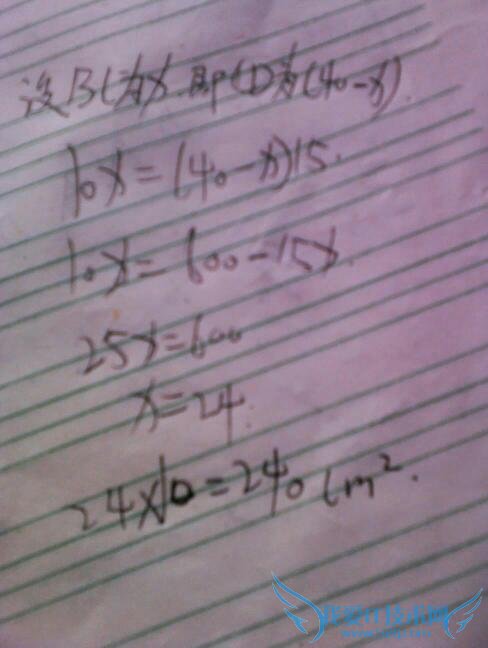 设BC为x.即CD为(40-x).
10x=(40-x)15.
10x=600-15x.
25x=600
x=24.
24x10=240cm².
我爱IT技术网